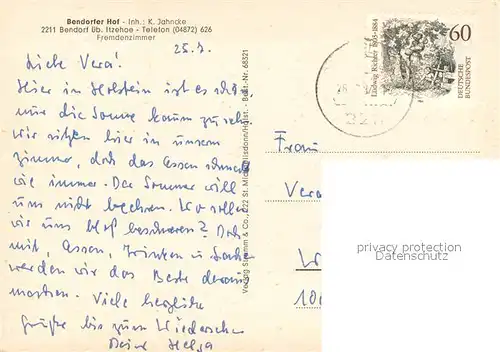 Bendorfer Hof - Inh.: K. Jahncke
2211 Bendorf üb. Itzehoe - Telefon (04872) 626
Fremdenzimmer
25.7.
Liebe Vera!
Hier in Holstein ist es schön,
nur die Sonne kaum zu sehn.
Wir sitzen hier in unsem
zimmer, doch das Essen schmeckt
wie immer. Der Sommer will
uns nicht begehren. Wo soll
wir uns bloß beschweren? Doch
mit, Essen, Trinken u. Lachen
werden wir das Beste daraus
machen. Viele herzliche
Grüße bis zum Wiedersehn
Deine Helga
Verlag Stramm & Co., 222 St. Michaelisdonn/Holst. - Best.-Nr. 68321
Ludwig Richter 1803-1884
60
DEUTSCHE
BUNDESPOST
Frau
Vera
privacy protection
Datenschutz
W
100